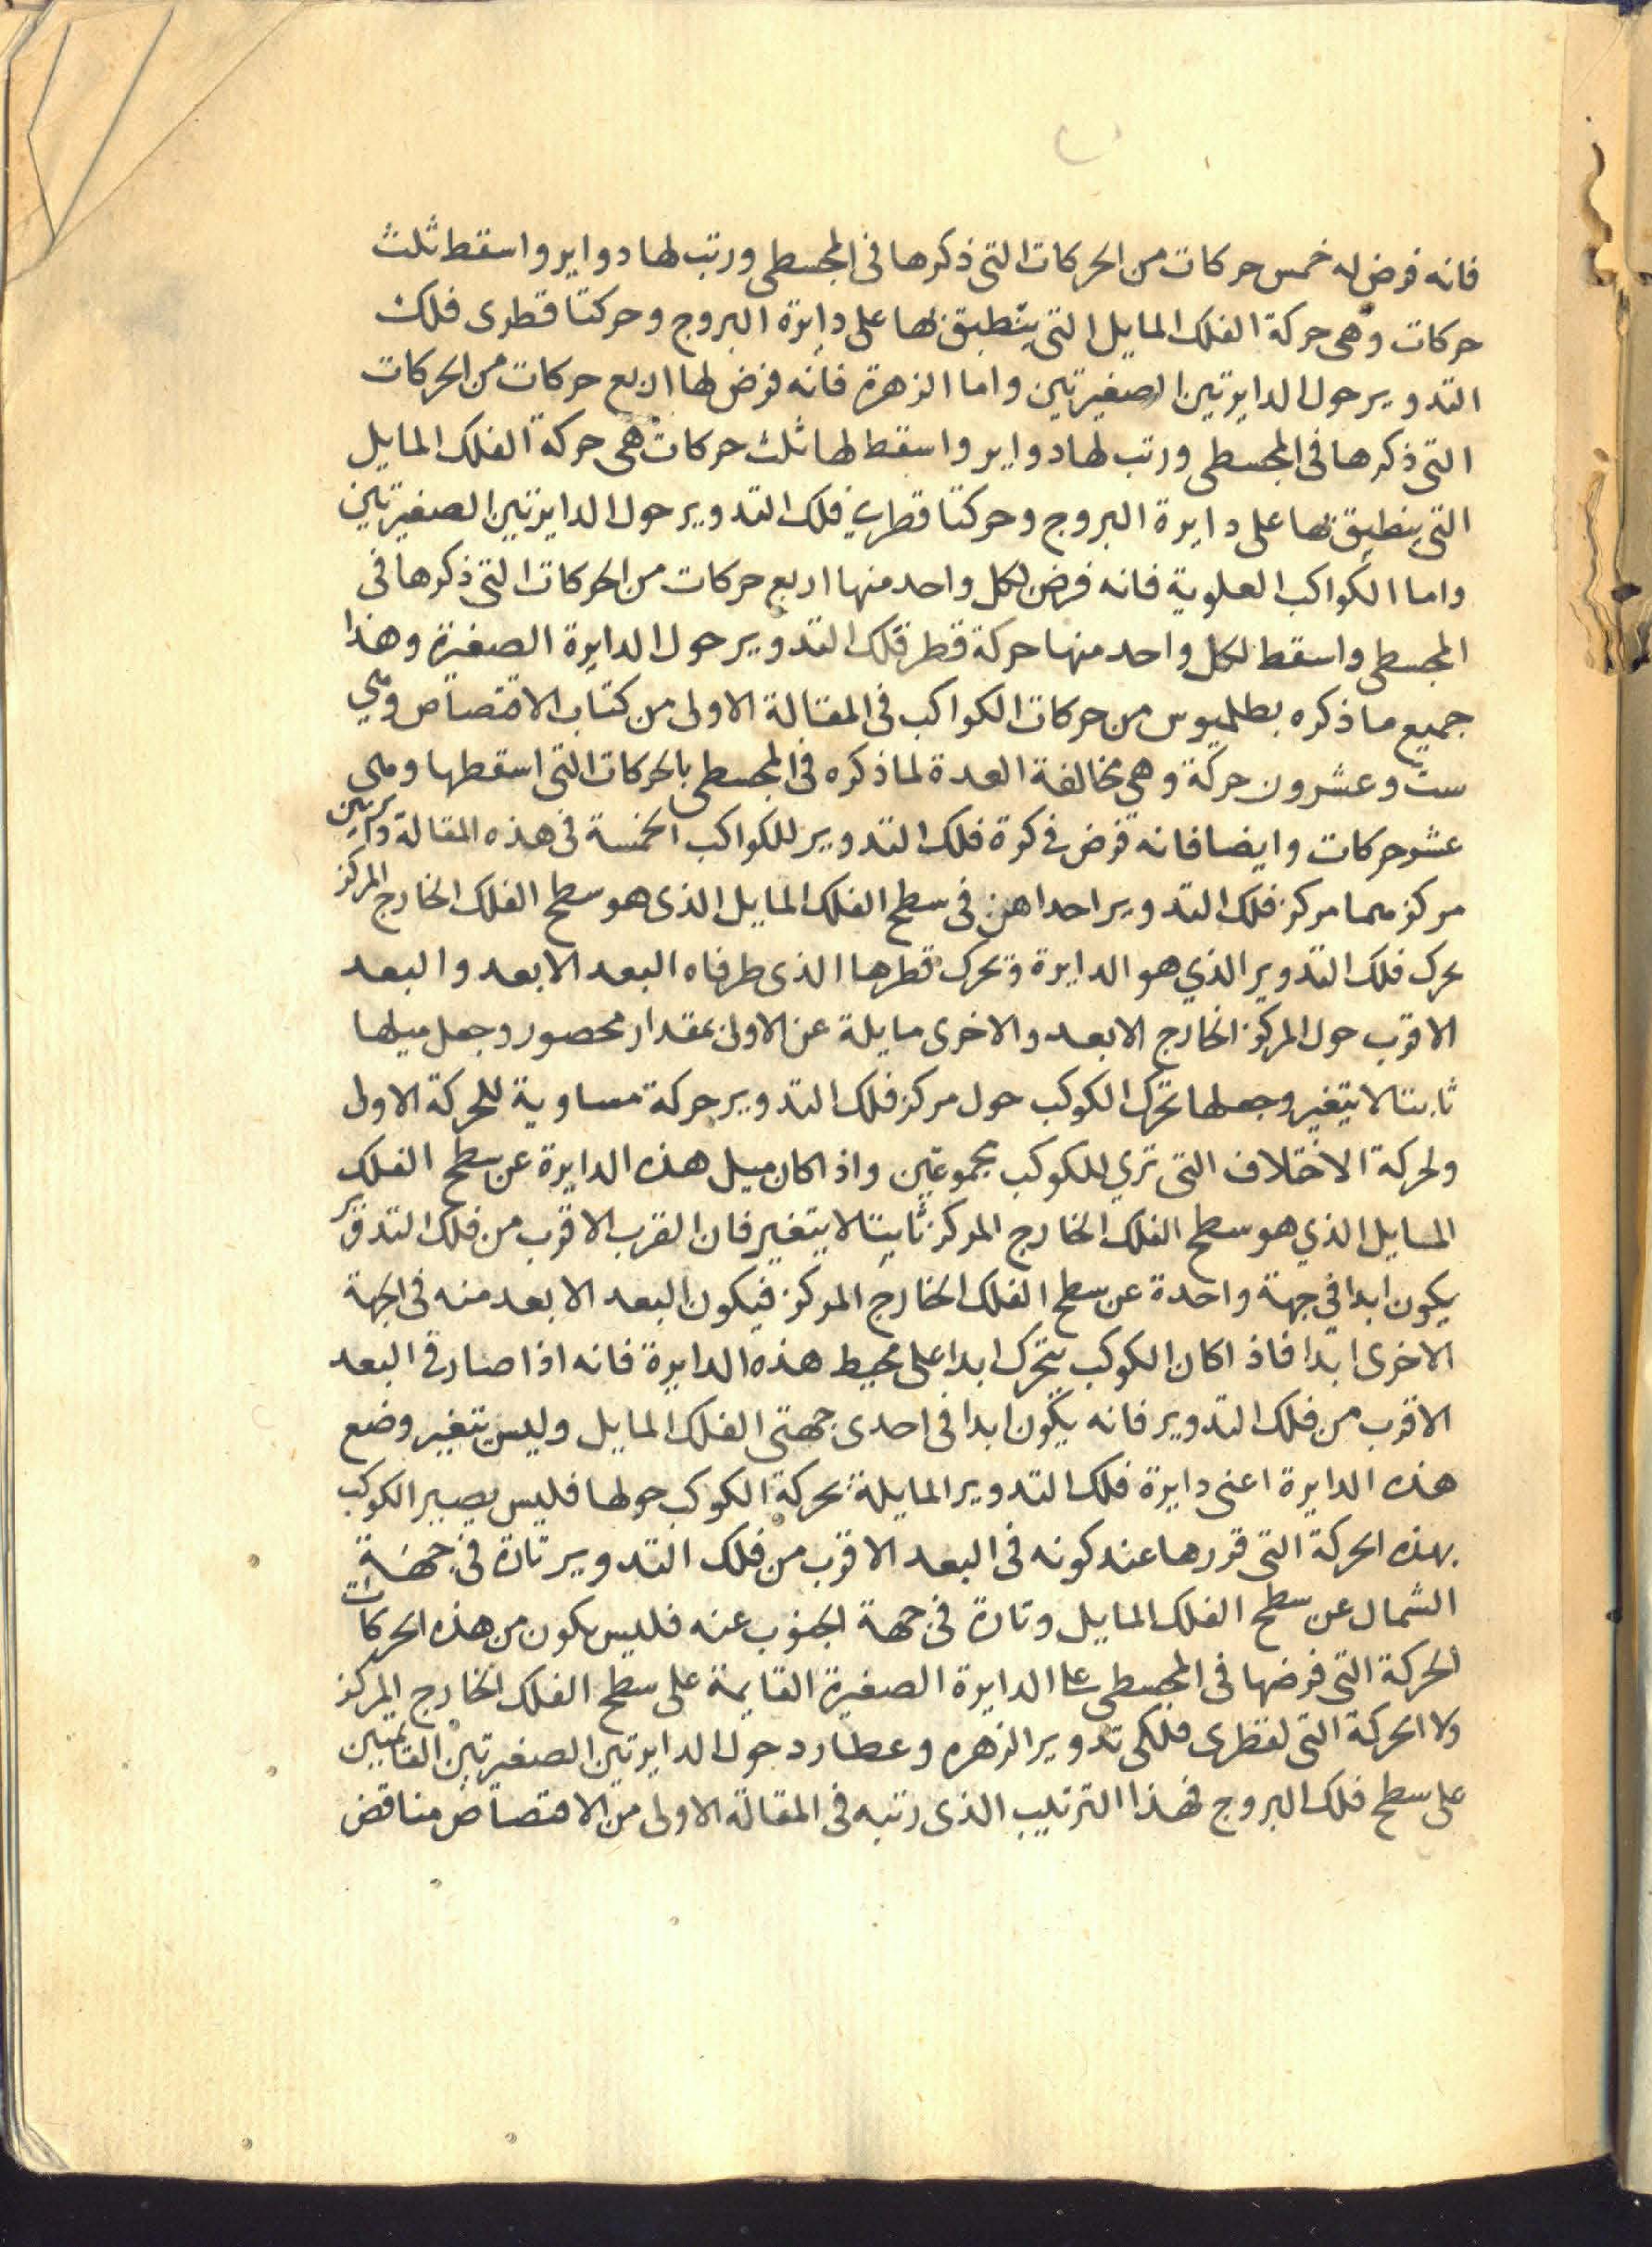 فانه فرض له خمس حركات من الحركات التى ذكرها فى المجسطى ورتب لها دواير واسقط ثلث
حركات وهى حركة الفلك المايل التى ينطبق بها على دايرة البروج وحركتا قطرى فلك
التدوير حول الدايرتين الصغيرتين واما الزهرة فانه فرض لها اربع حركات من الحركات
التى ذكرها فى المجسطى ورتب لها دواير واسقط لها ثلث حركات هى حركة الفلك المايل
التى ينطبق بها على دايرة البروج وحركتا قطرى فلك التدوير حول الدايرتين الصغيرتين
واما الكواكب العلوية فانه فرض لكل واحد منها اربع حركات من الحركات التى ذكرها فى
المجسطى واسقط لكل واحد منها حركة قطر فلك التدوير حول الدايرة الصغيرة وهذا
جميع ما ذكره بطلميوس من حركات الكواكب فى المقالة الاولى من كتاب الاقتصاص وهي
ست وعشرون حركة وهى مخالفة العدة لما ذكره فى المجسطى بالحركات التى اسقطها وهى
عشر حركات وايضا فانه فرض في كرة فلك التدوير للكواكب الخمسة فى هذه المقالة دايرتين
مركزهما مركز فلك التدوير احداهن فى سطح الفلك المايل الذى هو سطح الفلك الخارج المركز
تحرك فلك التدوير الذي هو الدايرة وتحرك قطرها الذى طرفاه البعد الابعد والبعد
الاقرب حول المركز الخارج الابعد والاخرى مايلة عن الاولى بمقدار محصور وجعل ميلها
ثابتا لا يتغير وجعلها تحرك الكوكب حول مركز فلك التدوير حركة مساوية للحركة الاولى
ولحركة الاختلاف التى تري للكوكب مجموعتين واذا كان ميل هذه الدايرة عن سطح الفلك
المايل الذي هو سطح الفلك الخارج المركز ثابتا لا يتغير فان القرب الاقرب من فلك التدوير
يكون ابدا في جهة واحدة عن سطح الفلك الخارج المركز فيكون البعد الابعد منه فى الجهة
الاخرى ابدا فاذا كان الكوكب يتحرك ابدا على محيط هذه الدايرة فانه اذا صار فى البعد
الاقرب من فلك التدوير فانه يكون ابدا فى احدى جهتى الفلك المايل وليس تتغير وضع
هذه الدايرة اعنى دايرة فلك التدوير المايلة بحركة الكوكب حولها فليس يصير الكوكب
بهذه الحركة التى قررها عند كونه فى البعد الاقرب من فلك التدوير تارة فى جهة
الشمال عن سطح الفلك المايل وتارة فى جهة الجنوب عنه فليس يكون من هذه الحركات
الحركة التى فرضها فى المجسطى على الدايرة الصغيرة القايمة على سطح الفلك الخارج المركز
ولا الحركة التى لقطرى فلكى تدوير الزهره وعطارد حول الدايرتين الصغيرتين القايمتين
على سطح فلك البروج فهذا الترتيب الذى رتبه فى المقالة الاولى من الاقتصاص مناقض